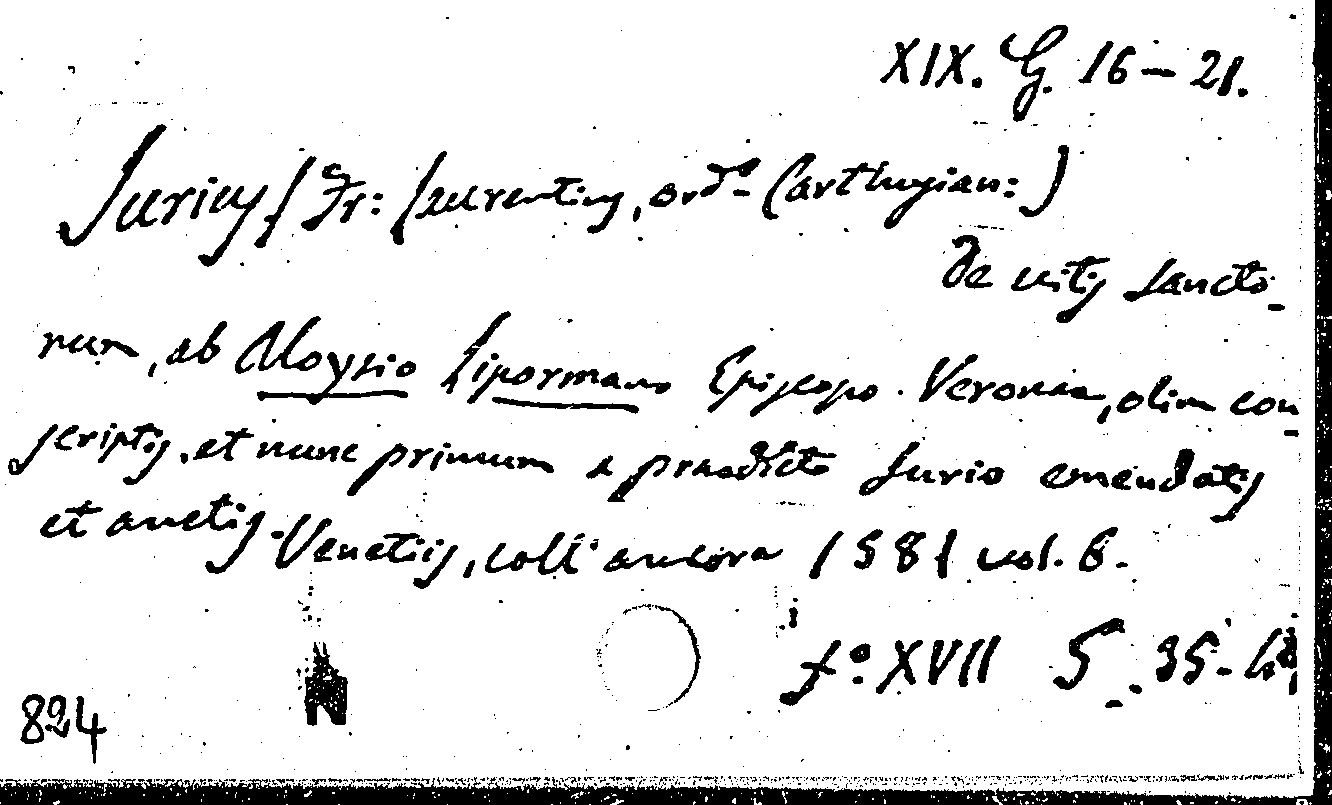 XIX. G. 16 – 21.
Surius / Fr: Laurentius, ord.s Carthusian: )
De vitis Sancto-
rum, ab Aloysio Lipormano Episcopo Veronae, olim con-
scriptis, et nunc primum a praedicto Surio emendatis
et auctis. Venetiis, coll' ancora 1581 vol. 6.
f.o XVII 5. 35-
824